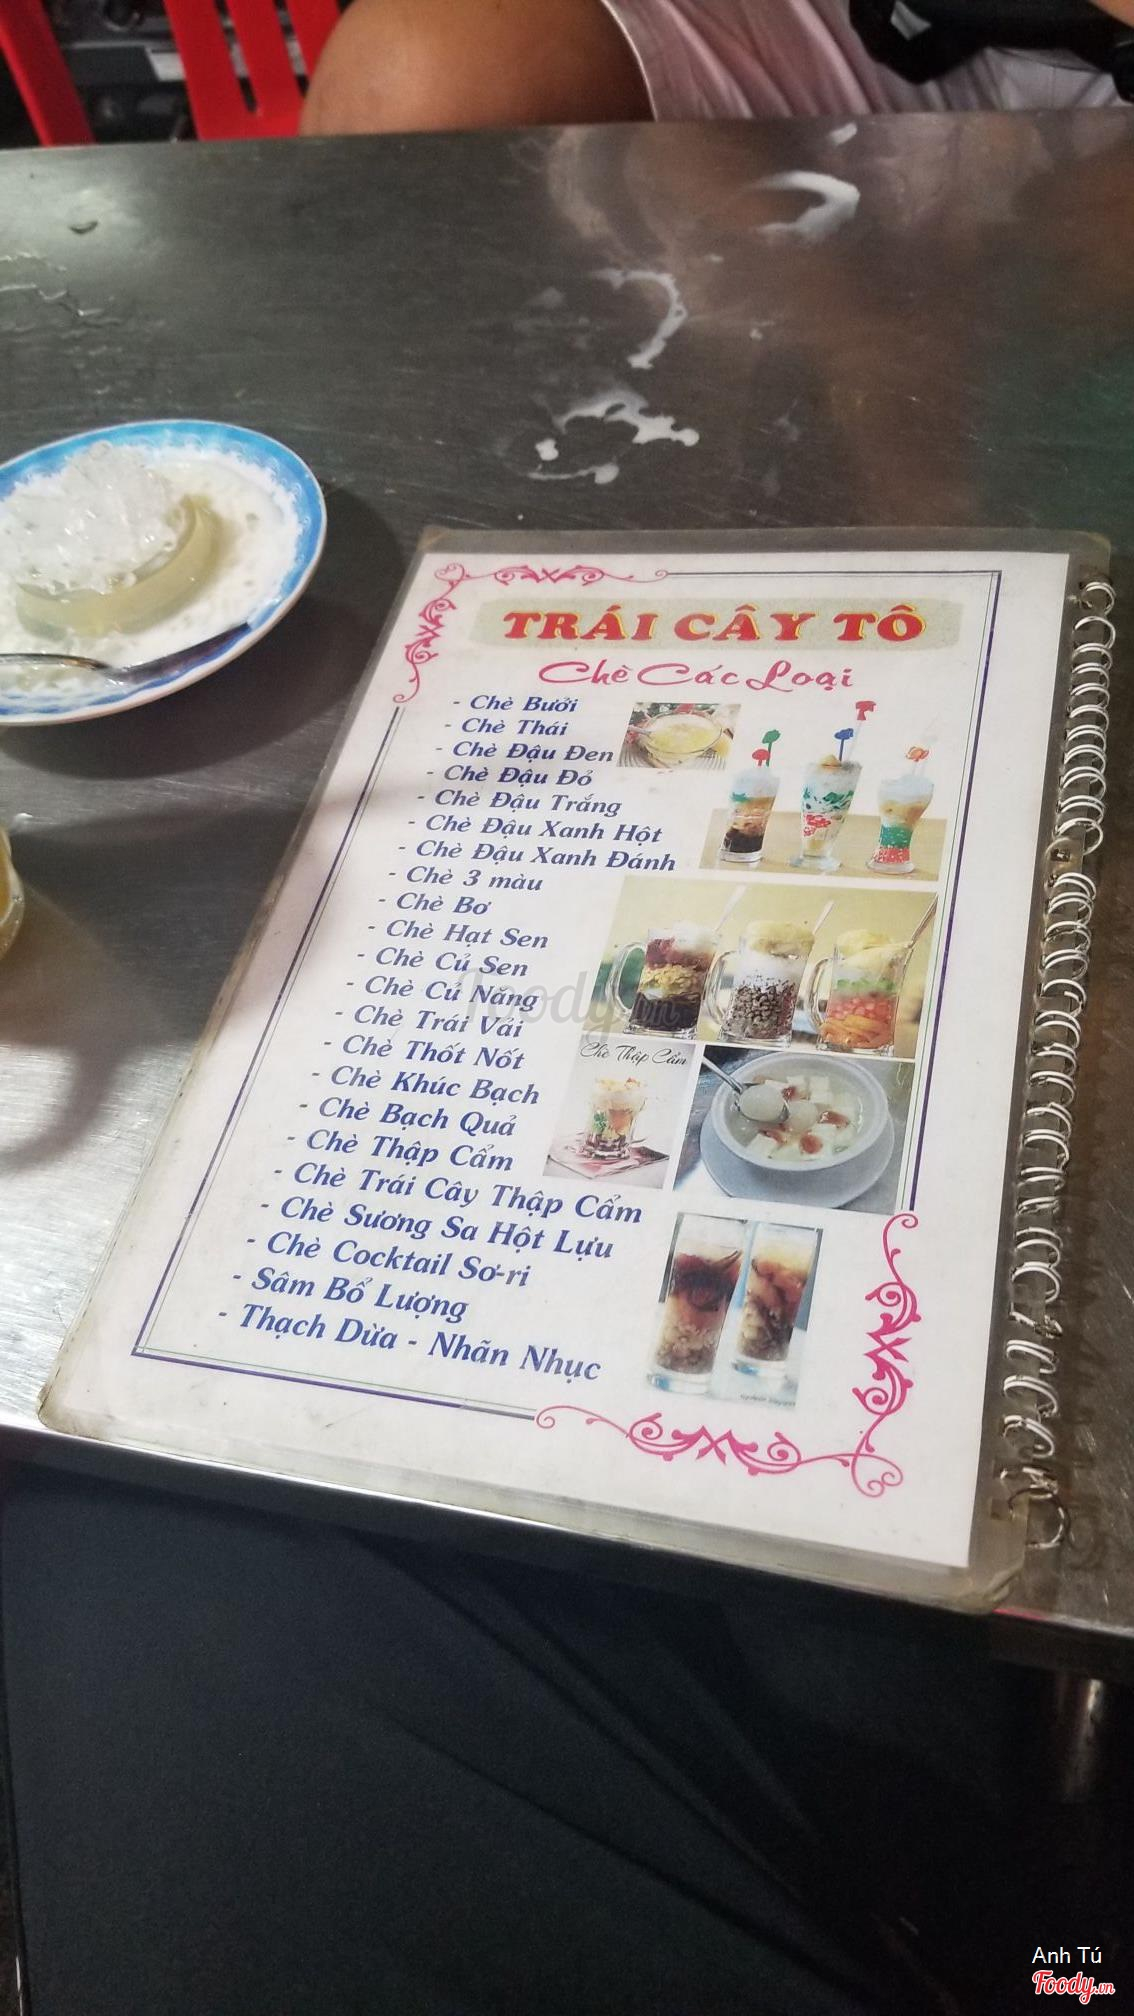 TRÁI CÂY TÔ
Chè Các Loại
- Chè Bưởi
- Chè Thái
- Chè Đậu Đen
- Chè Đậu Đỏ
- Chè Đậu Trắng
- Chè Đậu Xanh Hột
- Chè Đậu Xanh Đánh
- Chè 3 màu
- Chè Bơ
- Chè Hạt Sen
- Chè Củ Sen
- Chè Củ Năng
- Chè Trái Vải
- Chè Thốt Nốt
- Chè Khúc Bạch
- Chè Bạch Quả
- Chè Thập Cẩm
- Chè Trái Cây Thập Cẩm
- Chè Sương Sa Hột Lựu
- Chè Cocktail Sơ-ri
- Sâm Bổ Lượng
- Thạch Dừa - Nhãn Nhục
Chè Thập Cẩm
Foody.vn
Anh Tú
Foody.vn